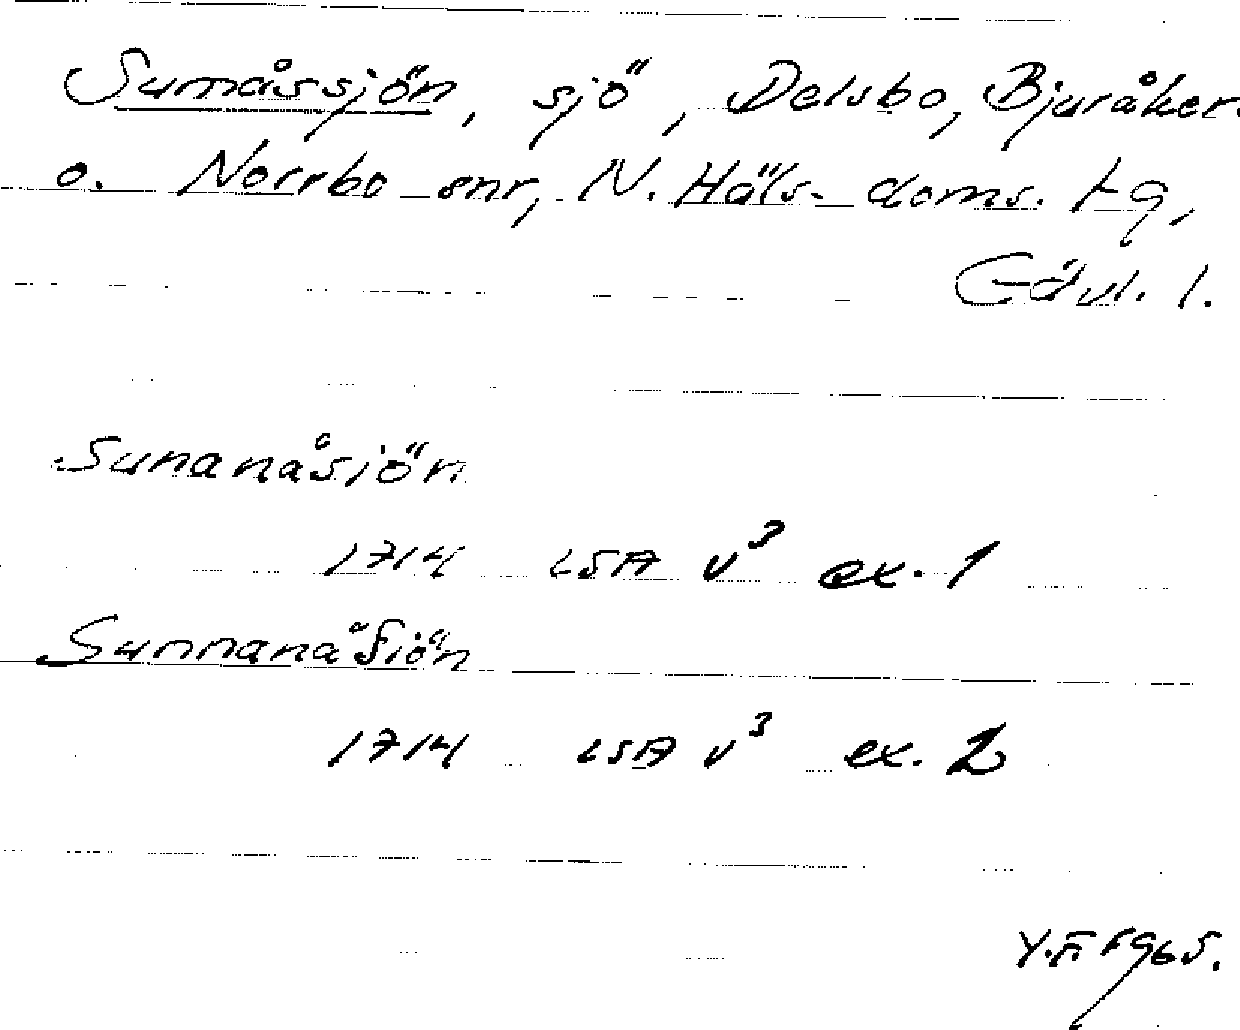 Sumåssjön, sjö, Delsbo, Bjuråker.
o. Norrbo snr, N. Häls. doms. tg,
Gävl. l.
Sunanåsiön
1714 LSA v³ ex. 1
Sunnanåſiön
1714 LSA v³ ex. 2
1965.